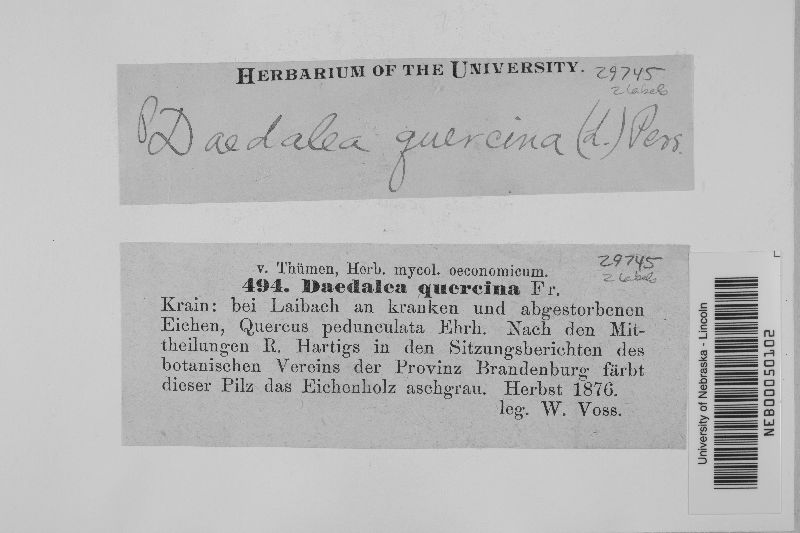 HERBARIUM OF THE UNIVERSITY. 29745
2 labels
P Daedalea quercina (L.) Pers.
v. Thümen, Herb. mycol. oeconomicum. 29745
2 labels
494. Daedalea quercina Fr.
Krain: bei Laibach an kranken und abgestorbenen
Eichen, Quercus pedunculata Ehrh. Nach den Mit-
theilungen R. Hartigs in den Sitzungsberichten des
botanischen Vereins der Provinz Brandenburg färbt
dieser Pilz das Eichenholz aschgrau. Herbst 1876.
leg. W. Voss.
University of Nebraska - Lincoln
NEB00050102